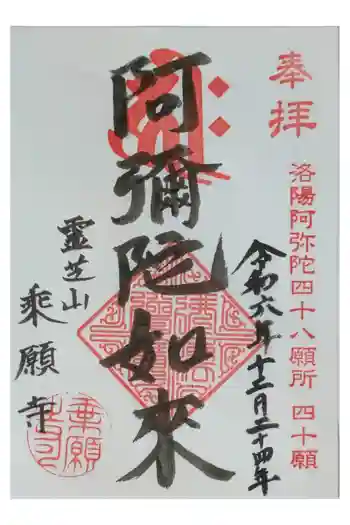 奉拝
洛陽阿弥陀四十八願所 四十願
令和六年十二月二十四年
阿彌陀如來
霊芝山
乗願寺
乗願